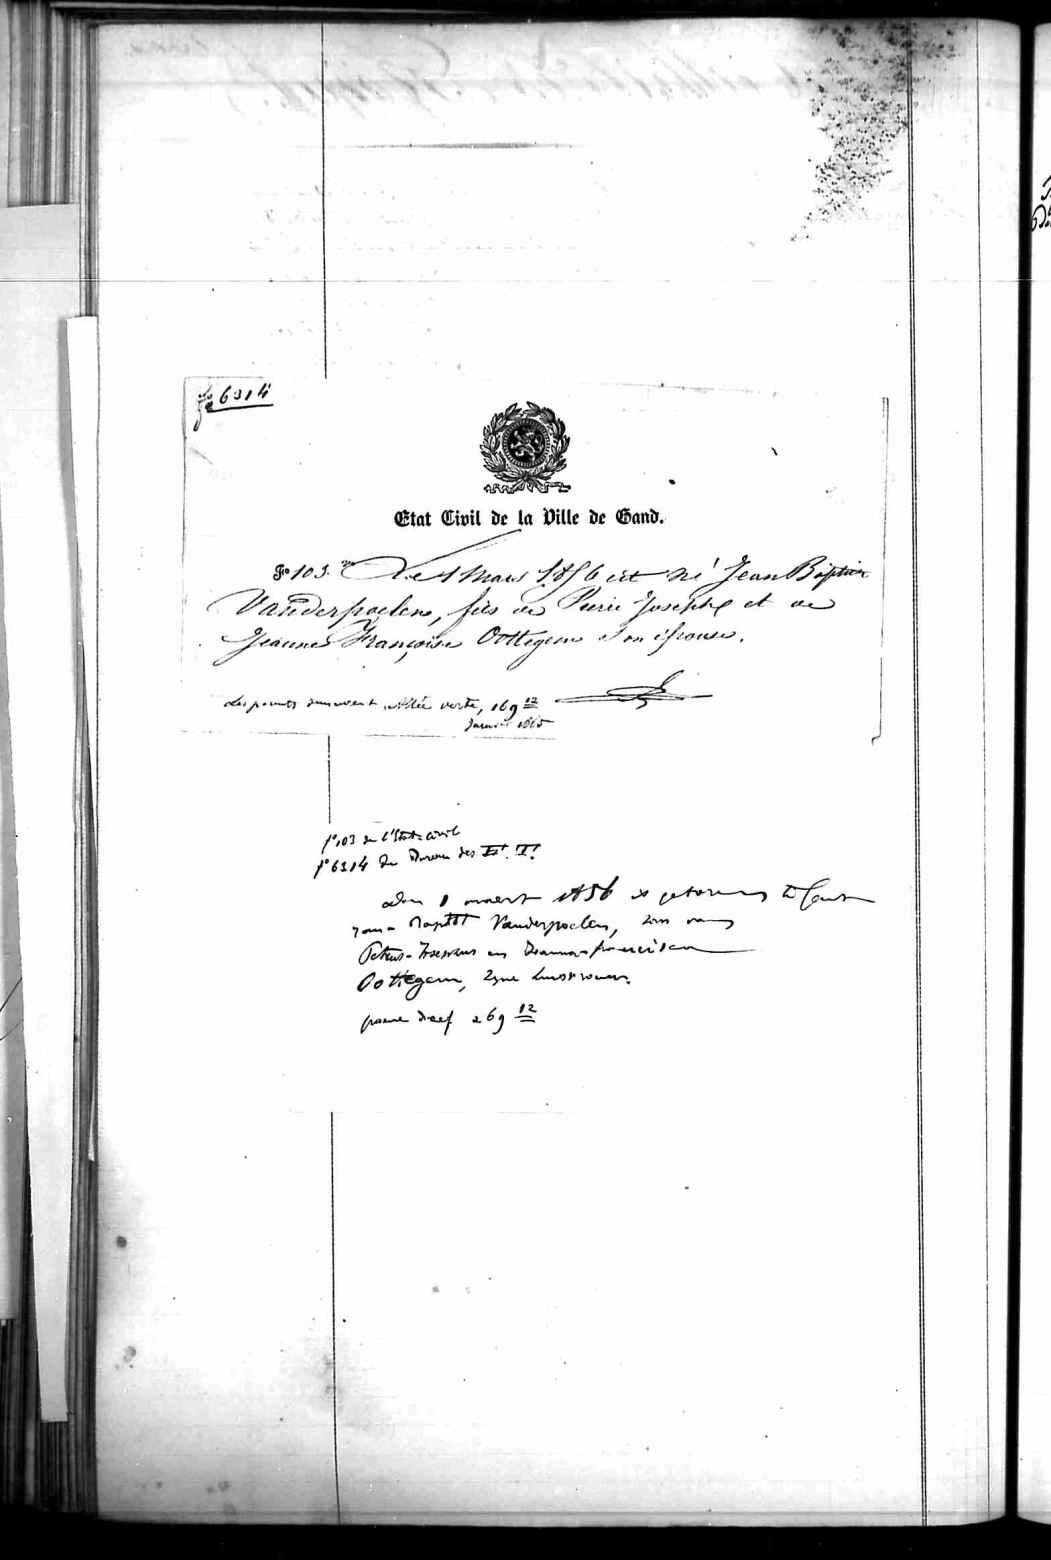 fo 6314
Etat Civil de la Ville de Gand.
Fo 103. Le 1 Mars 1856 est né Jean Baptiste
Vanderpoelen, fils de Pierre Joseph et de
Jeanne Françoise Oottegem son épouse.
Les parents demeurent Allée verte, 169 12
Janvier 1865
fo 103 de l'Etat civil
fo 6314 du Bureau des
den 1 maert 1856 is geboren te Gent
Jean Baptist Vanderpoelen, zoon van
Petrus-Josephus en Joanna-francisca
Oottegem, zyne huisvrouw.
groene dreef 169 12